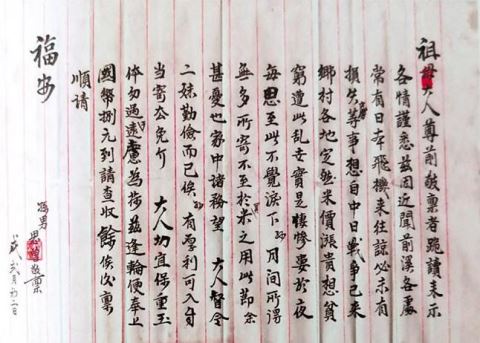 祖母大人尊前敬禀者跪讀来示
各情謹悉茲因近聞前溪各處
常有日本飛機来往諒必未有
損失等事想自中日戰争已来
鄉村各地定然米價漲貴想貧
窮遭此乱世實是悽慘要於夜
每思至此不覺淚下 月間所得
無多所寄不至於米之用此節余
甚憂也家中諸務望 大人督令
二妹勤儉而已俟 有盈利可入自
當寄公免介 大人切宜保重玉
体勿過遠慮為荷茲逢輪便奉上
國幣捌元到請查收餘俟後禀
順請
福安
男 敬禀
弍月初二日